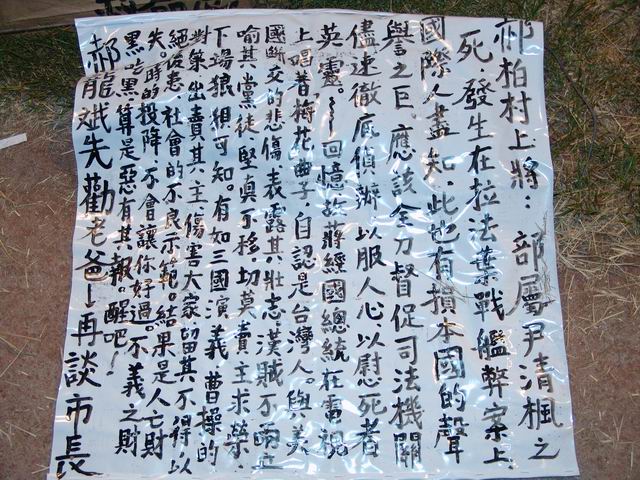 郝柏村上將：部屬尹清楓之
死．發生在拉法葉戰艦弊案上
國際人盡知．此也有損本國的聲
譽之巨．應該全力督促司法機關
儘速徹底偵辦．以服人心以慰死者
英靈。回憶故蔣經國總統在電視
上唱着梅花曲子．自認是台灣人。與美
國斷交的悲傷．表露其壯志漢賊不兩立
喻其黨徒堅真不移．切莫賣主求榮．
下場狼狽可知。有如三國演義曹操的
對策．出賣其主．傷害大家．留其不得．以
絕後患．社會的不良示範。結果是人亡財
失．時的投降．不會讓你好過。不義之財
黑吃黑．算是惡有其報。醒吧！
郝龍斌先勸老爸－再談市長